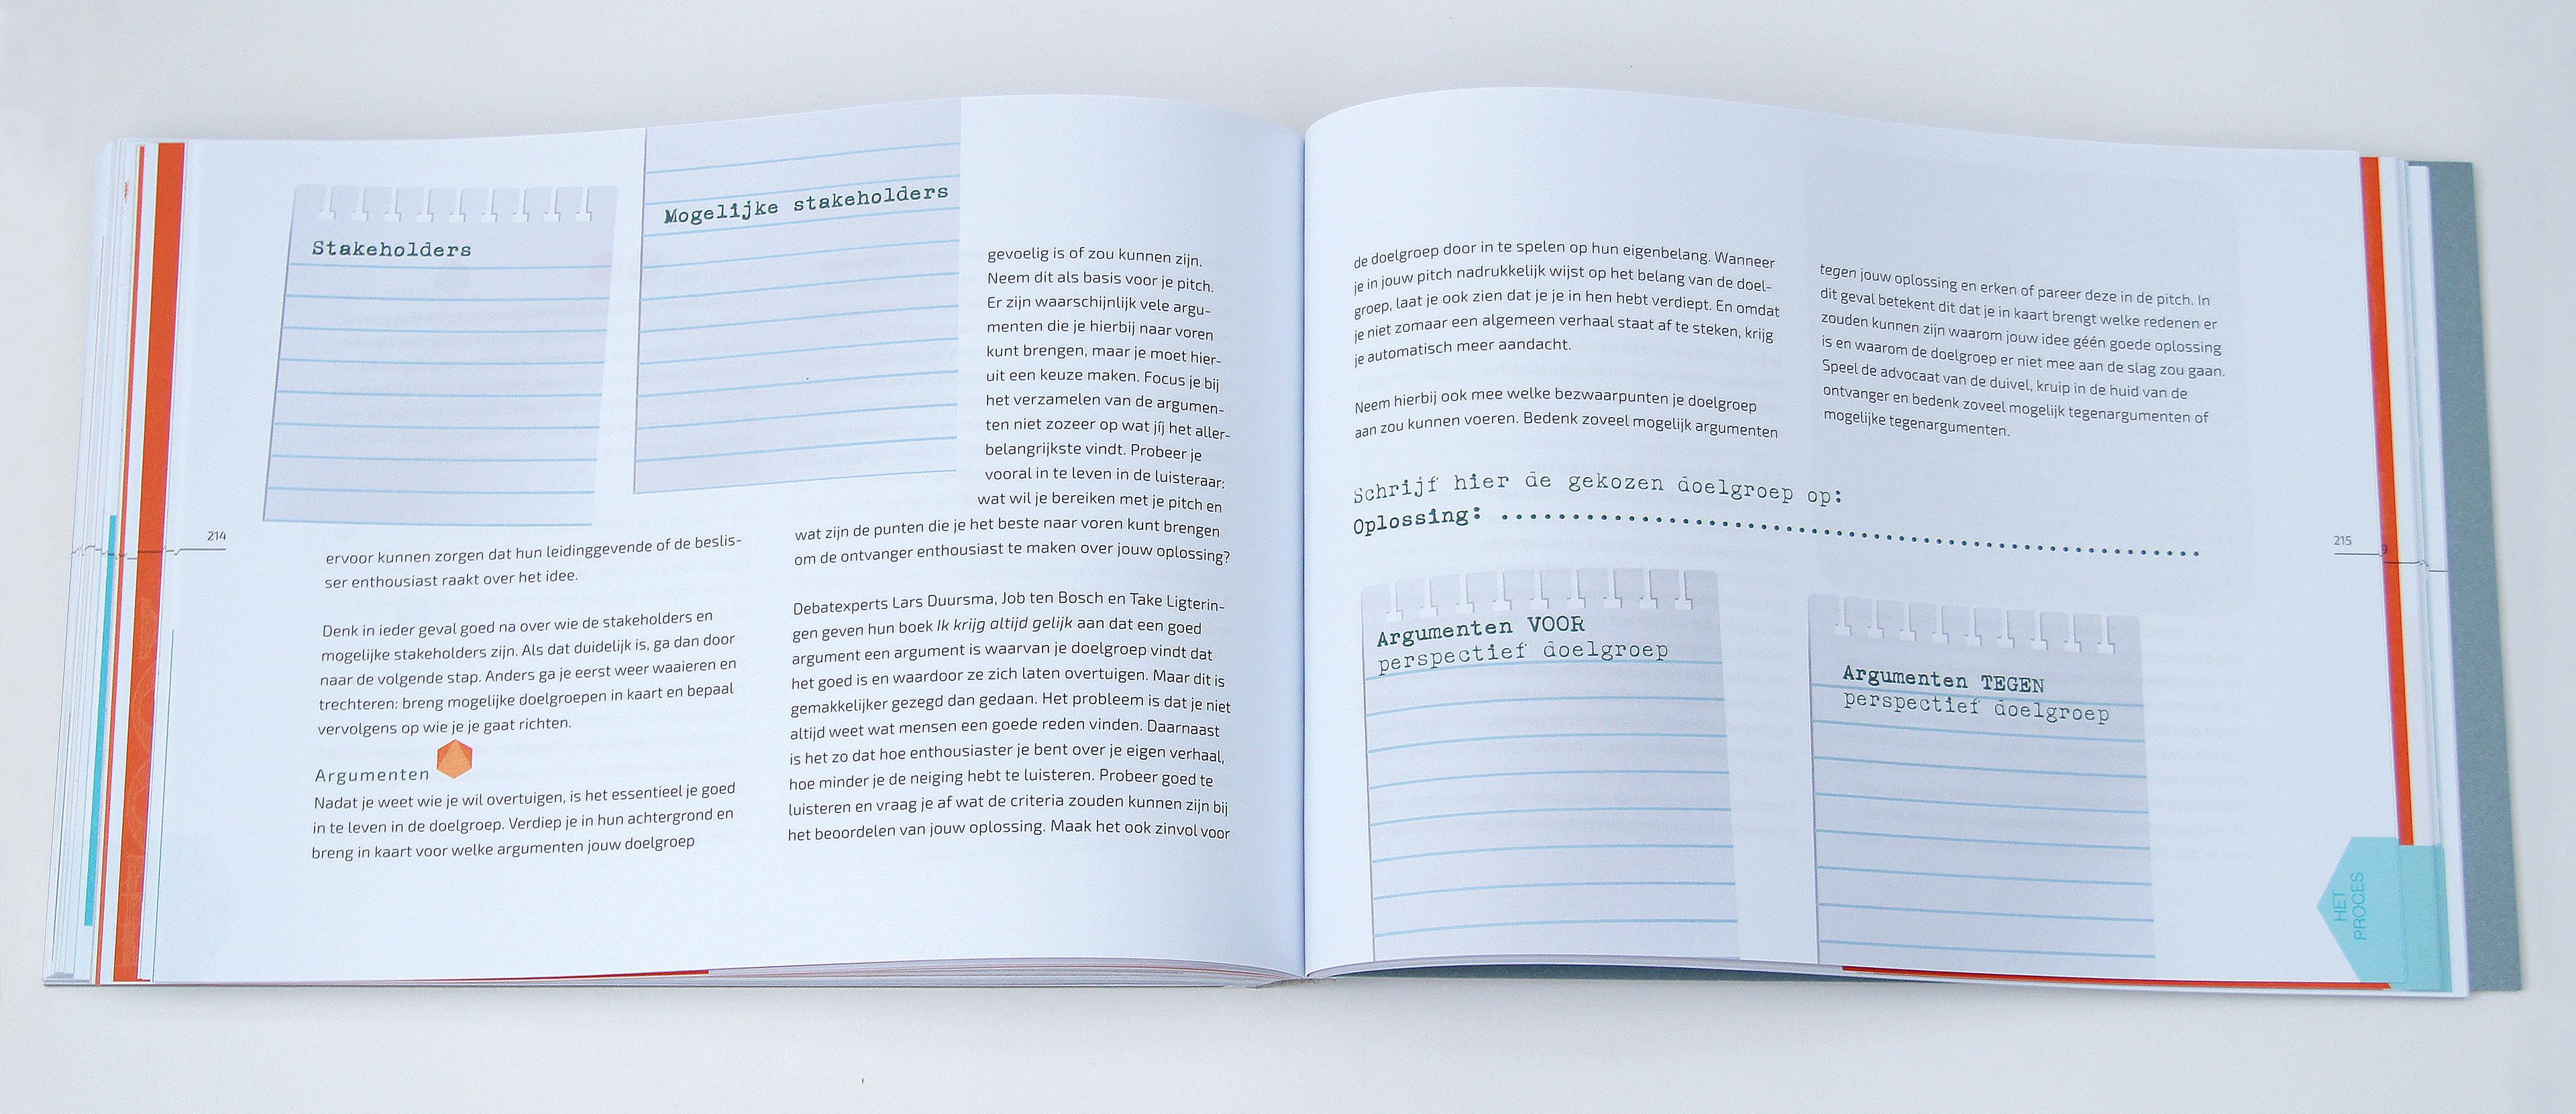 Stakeholders
Mogelijke stakeholders
214
ervoor kunnen zorgen dat hun leidinggevende of de beslis-
ser enthousiast raakt over het idee.
Denk in ieder geval goed na over wie de stakeholders en
mogelijke stakeholders zijn. Als dat duidelijk is, ga dan door
naar de volgende stap. Anders ga je eerst weer waaieren en
trechteren: breng mogelijke doelgroepen in kaart en bepaal
vervolgens op wie je je gaat richten.
Argumenten
Nadat je weet wie je wil overtuigen, is het essentieel je goed
in te leven in de doelgroep. Verdiep je in hun achtergrond en
breng in kaart voor welke argumenten jouw doelgroep
gevoelig is of zou kunnen zijn.
Neem dit als basis voor je pitch.
Er zijn waarschijnlijk vele argu-
menten die je hierbij naar voren
kunt brengen, maar je moet hier-
uit een keuze maken. Focus je bij
het verzamelen van de argumen-
ten niet zozeer op wat jíj het aller-
belangrijkste vindt. Probeer je
vooral in te leven in de luisteraar:
wat wil je bereiken met je pitch en
wat zijn de punten die je het beste naar voren kunt brengen
om de ontvanger enthousiast te maken over jouw oplossing?
Debatexperts Lars Duursma, Job ten Bosch en Take Ligterin-
gen geven hun boek Ik krijg altijd gelijk aan dat een goed
argument een argument is waarvan je doelgroep vindt dat
het goed is en waardoor ze zich laten overtuigen. Maar dit is
gemakkelijker gezegd dan gedaan. Het probleem is dat je niet
altijd weet wat mensen een goede reden vinden. Daarnaast
is het zo dat hoe enthousiaster je bent over je eigen verhaal,
hoe minder je de neiging hebt te luisteren. Probeer goed te
luisteren en vraag je af wat de criteria zouden kunnen zijn bij
het beoordelen van jouw oplossing. Maak het ook zinvol voor
de doelgroep door in te spelen op hun eigenbelang. Wanneer
je in jouw pitch nadrukkelijk wijst op het belang van de doel-
groep, laat je ook zien dat je je in hen hebt verdiept. En omdat
je niet zomaar een algemeen verhaal staat af te steken, krijg
je automatisch meer aandacht.
Neem hierbij ook mee welke bezwaarpunten je doelgroep
aan zou kunnen voeren. Bedenk zoveel mogelijk argumenten
tegen jouw oplossing en erken of pareer deze in de pitch. In
dit geval betekent dit dat je in kaart brengt welke redenen er
zouden kunnen zijn waarom jouw idee géén goede oplossing
is en waarom de doelgroep er niet mee aan de slag zou gaan.
Speel de advocaat van de duivel, kruip in de huid van de
ontvanger en bedenk zoveel mogelijk tegenargumenten of
mogelijke tegenargumenten.
Schrijf hier de gekozen doelgroep op:
Oplossing: ..........................................................
Argumenten VOOR
perspectief doelgroep
Argumenten TEGEN
perspectief doelgroep
215
HET
PROCES